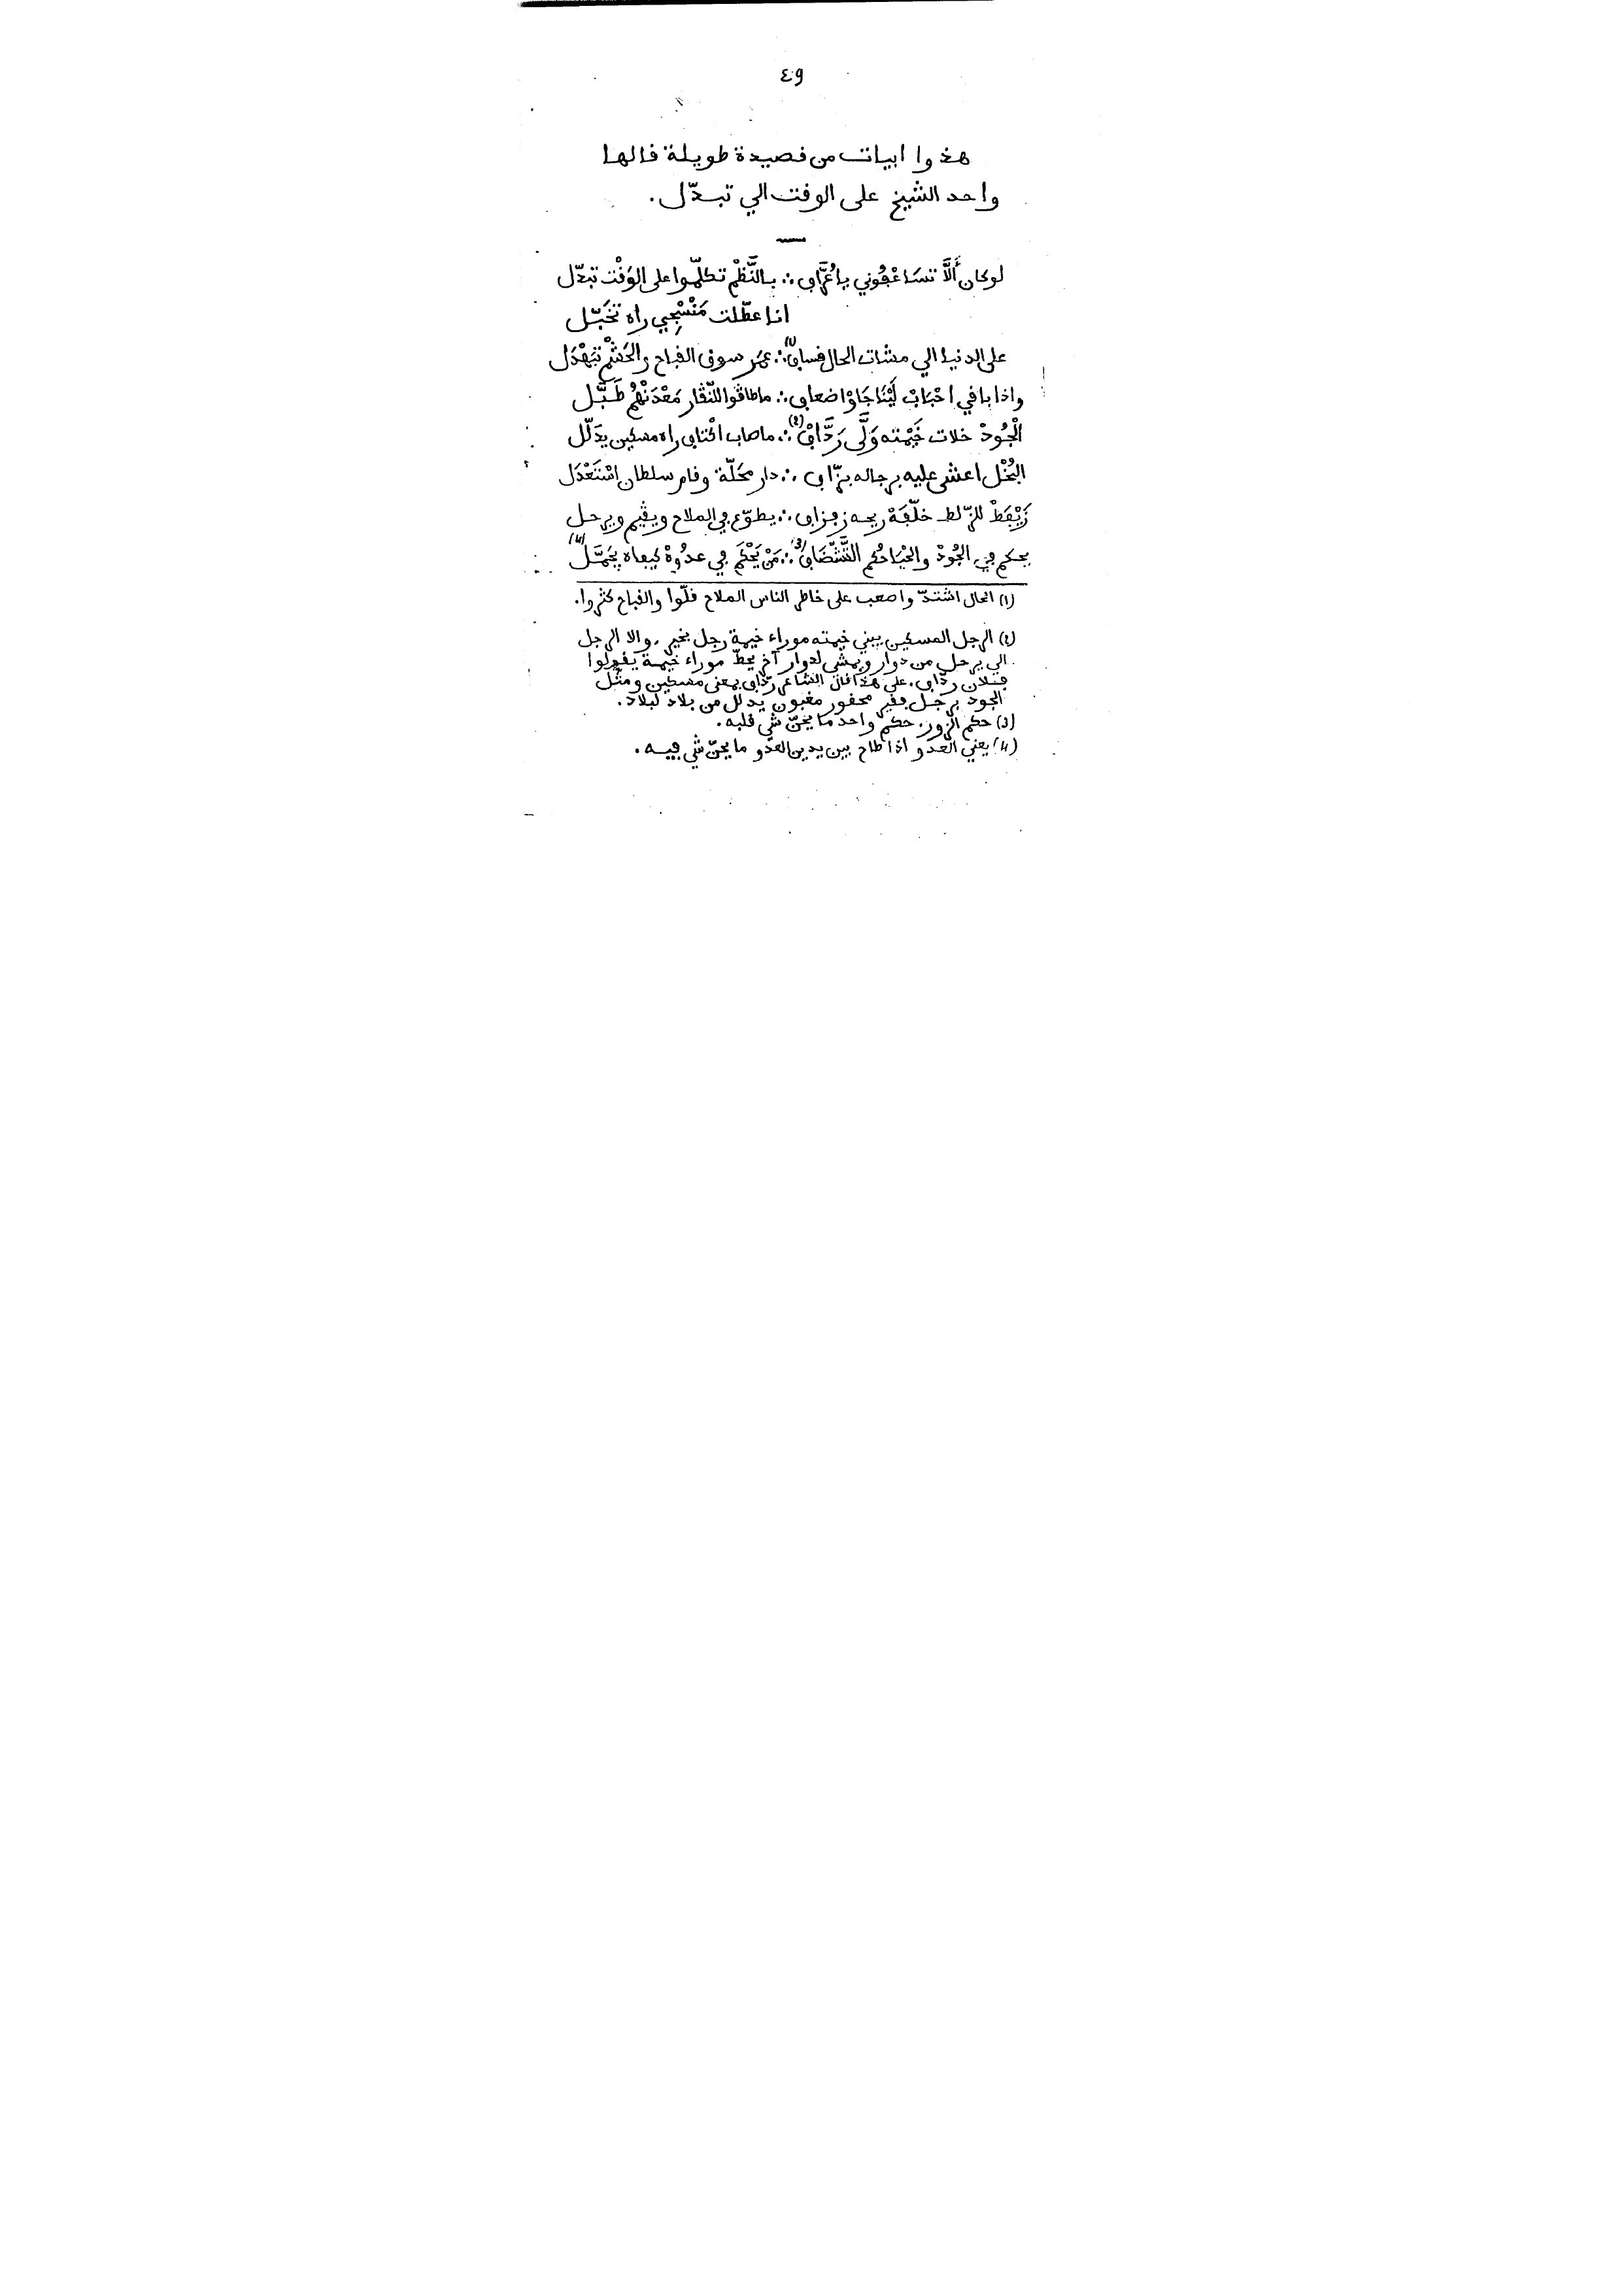 ٤9
هذوا ابيات من قصيدة طويلة قالها
واحد الشيخ على الوقت الي تبدّل .
لوكان أَلَّا تسَاعْفُوني يا عُرَّاف ∴ بالنَّظْم تكلّموا على الوَقْت تبدّل
انا عطّلت مَنْسْجِي راه تخَبّل
على الدنيا الي مشات الحال قساف (١) ∴ عمر سوق القباح والحَشْم تبَهْدَل
واذا باقي احْبَابْ لَيْنَا جَاوْا ضعاف ∴ ما طاڨوا للنّڨار مَعْدَنْهُم طَبَّل
الْجُودْ خلات خَيْمته وَلَّى رَدَّافْ (٤) ∴ ما صاب اكْتاف راه مسكين يدَلّل
البُخْل اعشى عليه برجاله بزّاف ∴ دار محَلّة وقام سلطان اسْتَعْدَل
للزّلط خلّفَهْ ريحه زفزاف ∴ يطوّع في الملاح ويڨيم ويرحل
يحكم في الجُودْ والحْيَا حُكم (3) ∴ مَنْ يَحْكَم في عدُوهْ كيفاه يجَمَّل (٤)
(١) الحال اشتدّ واصعب على خاطر الناس الملاح قلّوا والقباح كثروا.
(٤) الرجل المسكين يبني خيمته موراء خيمة رجل بخير . والا الرجل
الي يرحل من دوار ويمشي لدوار آخر يحطّ موراء خيمة يقولوا
فلان ردّاف . على هذا قال الشاعر ردّاف بمعنى مسكين ومثّل
الجود برجل فقير محقور مغبون يدلل من بلاد لبلاد .
(3) حكم الزور . حكم واحد ما يحنّ شي قلبه .
(٤) يعني العدو اذا طاح بين يدين العدو ما يحنّ شي فيه .